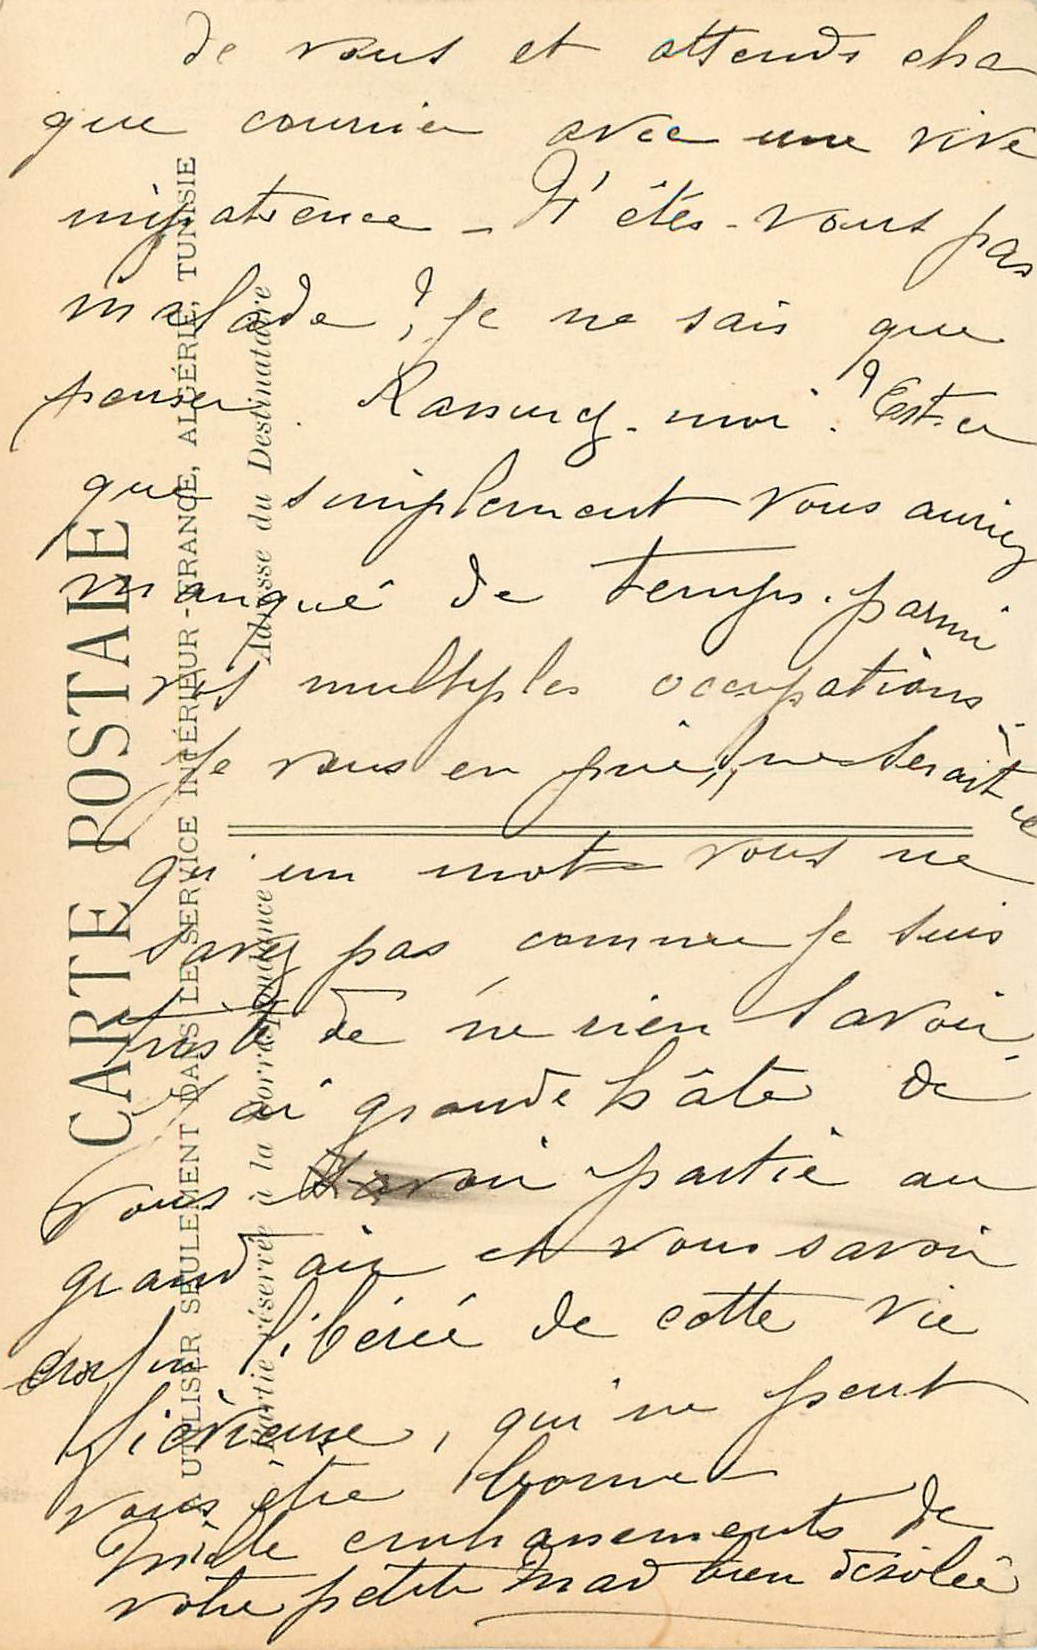 de vous et attends cha
que courrier avec une vive
impatience - N'êtes-vous pas
malade ? Je ne sais que
penser. Rassurez-moi. ? Est-ce
que simplement vous auriez
manqué de temps parmi
vos multiples occupations.
Je vous en prie, ne serait ce
qu'un mot vous ne
savez pas comme je suis
triste de ne rien savoir.
J'ai grande hâte de
vous savoir partie au
grand air et vous savoir
enfin libérée de cette vie
fiévreuse, qui ne peut
vous être bonne
Mille embrassements de
votre petite Mad bien désolée
CARTE POSTALE
A UTILISER SEULEMENT DANS LE SERVICE INTÉRIEUR - FRANCE, ALGÉRIE, TUNISIE
Partie réservée à la Correspondance
Adresse du Destinataire